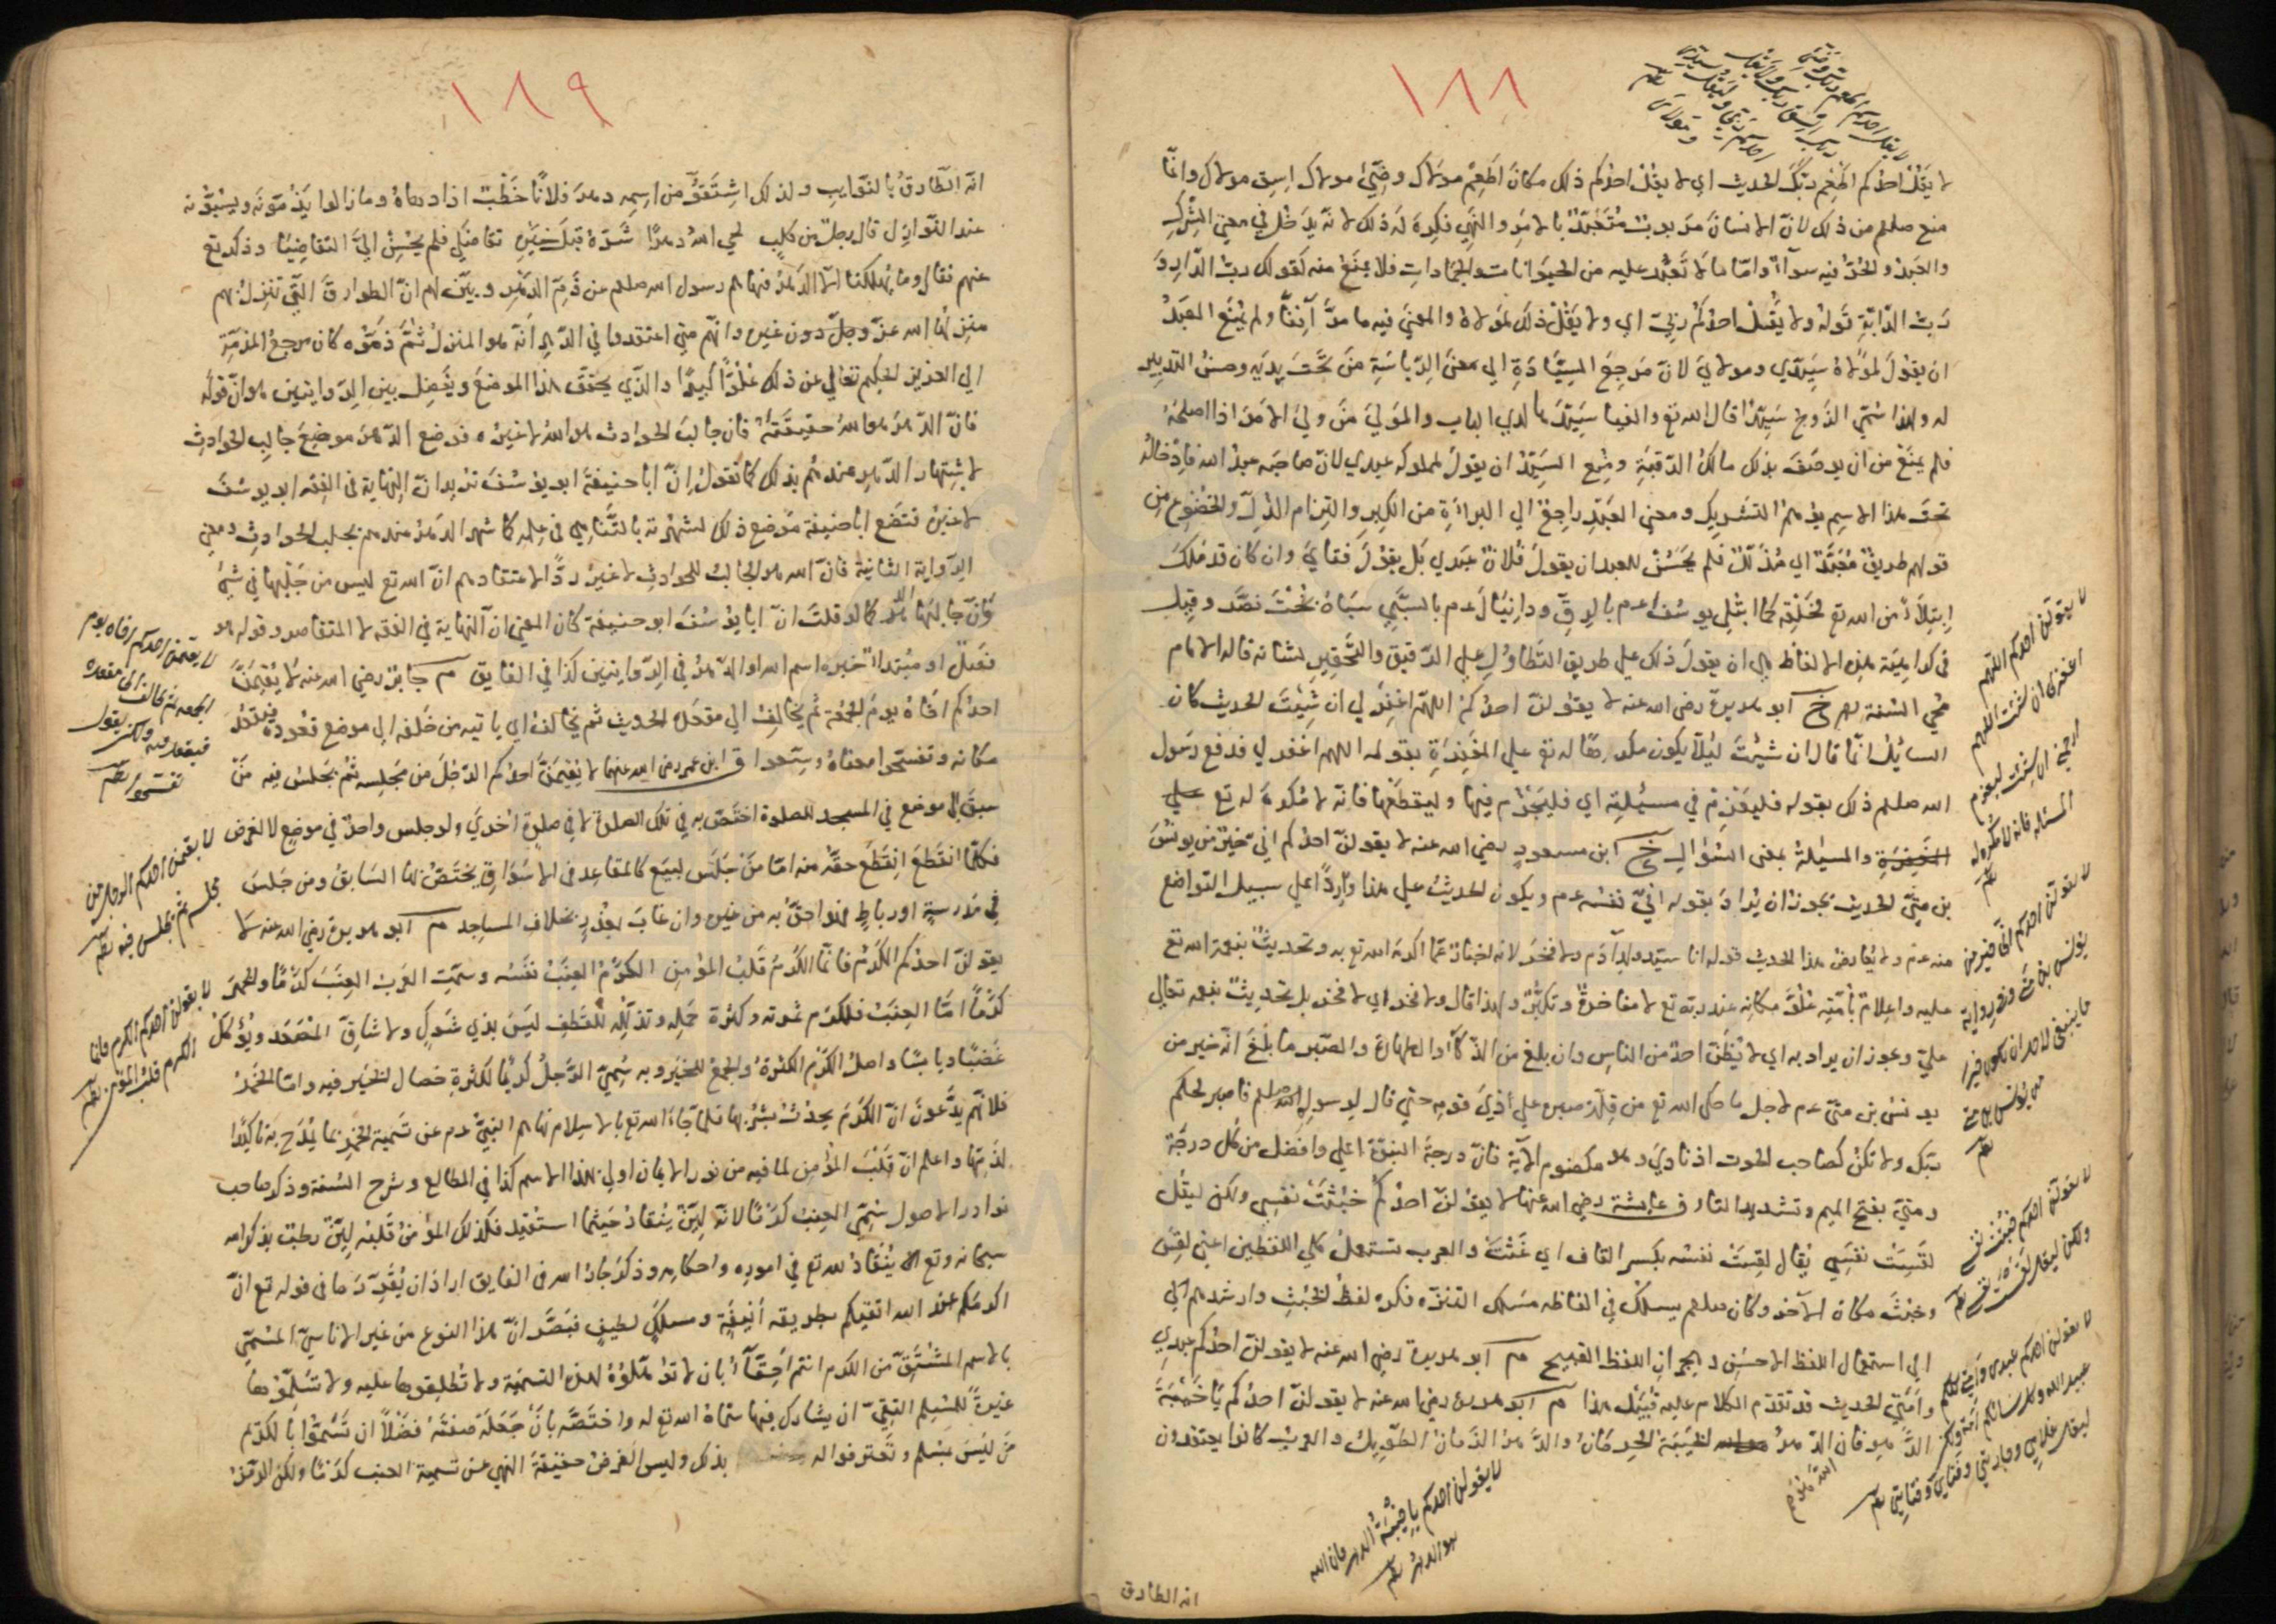 ١٨٨
لا يقل احدكم اطعم ربك وضئ
ربك اسق ربك ولا يقل
احدكم ربي وليقل سيدي
ومولاي
لا يَقُلْ احدكم اَطْعِمْ ربَّكَ الحديث اي لا يقُلْ احدُكم ذلك مكانَ اَطعِمْ مَوْلاك وضِّئْ مولاك اِسقِ مولاك وانّما
منع صلعم من ذلك لانّ الانسانَ مَربوبٌ مُتَعَبَّدٌ بالامرِ والنهيِ فكِرهَ لَه ذلك لانّه يدخُل في معنى الشِّركِ
والعَبدُ والحُرّ فيه سوآءٌ وامّا ما لا تَعَبُّد عليه من الحيَوانات والجمادات فلا يمنَعُ منه كقولك ربّ الدّارِ و
رَبّ الدّابّةِ قَولهُ ولا يَقُلْ احدُكُمْ رَبّي اي ولا يَقُلْ ذلك لمولاهُ والمعنى فيه ما مرّ آنِفًا ولم يُمنَع العَبدُ
ان يقولَ لمولاهُ سَيِّدي ومولايَ لانّ مَرجِعَ السِّيَادَةِ الى معنى الرِّياسَةِ مَنْ تحَتَ يدَيهِ وحسنُ التدبير
له ولهذا سُمّي الزوج سَيِّدًا قال الله تع والفيا سَيِّدَها لدى الباب والمَولى مَن وليَ الامرَ اذا اصلحَهُ
فلم يمنَعْ من ان يوصَفَ بذلك مالكُ الرّقبَةِ ومُنِع السَيّدُ ان يقولَ لمملوكه عبدي لانّ صاحبَه عبدُ الله فاِدْخالُه
تحتَ هذا الاسمِ يوهمُ التشريكَ ومعنى العَبدِ راجِعٌ الى البرآءَةِ من الكِبرِ والتزامِ الذُلّ والخضوع من
قولهم طريقٌ مُعَبَّدٌ اي مُذَلَّلٌ فلم يَحسُنْ للعبد ان يقولَ فُلانٌ عَبدي بَل يقُولُ فتايَ وان كان قد مَلَكَ
ابتلاءً من الله تع لخَلْقِه كما ابتُلي يوسُف عم بالرِقِّ ودانيَال عم بالسَّبي سَباهُ بُختَ نصَّر وقيل
في كراهيَة هذه الالفاظ هي ان يقولَ ذلك على طريق التَّطاوُلِ على الرّقيقِ والتَّحقيرِ لشانه قاله الامام
مُحي السُّنة ابو هريرة رضى الله عنه لا يقولَنّ احدُكمْ اللهمّ اغفِرْ لي ان شِئتَ الحديث كان
السائلُ انّما قال ان شئتَ ليلا يكون مكرها له تع على المغفِرةِ بقوله اللهم اغفر لي فدفع رسول
الله صلعم ذلك بقوله فليعزِم في مسئلتِه اي فليَجزِم فيها وليقطَعْها فانه لا مُكرِهَ له تع على
المغفرة والمسئلةُ بمعنى السُّؤالِ خ ابن مسعودٍ رضي الله عنه لا يقولنّ احدكم انّي خيرٌ من يونُسَ
بن متّى الحديث يجوز ان يُرادَ بقوله انّي نفسُه عم ويكون الحديثُ على هذا وارِدًا على سبيل التواضع
منه عم ولا يُعارضُ هذا الحديث قوله انا سيّد ولدِ آدَم ولا فخرَ لانه اخبارٌ عمّا اكرمَه الله تع به وتحديثٌ بنعمة الله تع
عليه واِعلامٌ لاُمّتِه عُلُوَّ مكانِه عند ربّه تع لا مفاخرةً وتكبُّرٌ ولهذا قال ولا فخر اي لا فخر بل تحديث بنعمه تعالى
عليّ ويجوز ان يراد به اي لا يظُنّ احدٌ من الناسِ وان بلغ من الذّكآء والطهارة والصّبرِ ما بلَغَ انّه خيرٌ من
يونسَ بن متّى عم لاجلِ ما حكى الله تع من قلّة صبرِه على اَذى قومِه حتى قال لرسولِ الله صلعم فاصبر لحكم
ربّك ولا تكنْ كصاحب الحوت اذ نادى وهو مكظوم الآية فانّ درجةَ النبوّة اعلى وافضل من كُل درجةٍ
ومتّى بفتح الميم وتشديد التاء ق عايشة رضي الله عنها لا يقولنّ احدُكُمْ خَبُثَتْ نفسي ولكن ليقُل
لقِسَتْ نفسي يُقال لقِسَتْ نفسُه بكسر القاف اي غَثَتْ والعرب تستعملُ كلي اللفظين اعني لقِسَ
وخبُثَ مكان الآخر وكان صلعم يسلكُ في الفاظه مسَلَك التنزّه فكره لفظَ الخُبثِ وارشدهم الى
الى استعمال اللفظ الاحسَنِ وهجرانِ اللفظ القبيح م ابو هريرة رضي الله عنه لا يقولنّ احدُكم عبدي
وامَتي الحديث قد تقدّم الكلام عليه قُبَيلَ هذا م ابو هريرة رضي الله عنه لا يقولنّ احدُكم يا خَيْبَةَ
الدَّهر فان الدّهرُ الخيبَة الحِرمانُ والدَّهرُ الزّمانُ الطّويلُ والعربُ كانوا يعتقدون
لا يقولن احدكم اللهم
اغفرلي ان شئت اللهم
ارحمني ان شئت ليعزم
المسئلة فانه لا مكره له
لا يقولن احدكم اني خير من
يونس بن متى وفي رواية
ما ينبغي لاحد ان يكون خيرا
من يونس بن متى
لا يقولن احدكم خبثت نفسي
ولكن ليقل لقست نفسي
لا يقولن احدكم عبدي وامتي كلكم
عبيد الله وكل نسائكم اماء الله ولكن
ليقل غلامي وجاريتي وفتاي وفتاتي
لا يقولن احدكم يا خيبة الدهر فان الله
هو الدهر
انه الطارق
١٨٩
انّه الطّارقُ بالنّوايبِ ولذلك اشتَقّوُّ من اسمِه دهرَ فلانًا خَطْبٌ اذا دهاهُ وما زالوا يَذُمّونَه ويسُبّونه
عند النّوازِل قال رجلٌ من كلبٍ لحى الله دهرًا شَرّهُ قبلَ خيرِه تقاضى فلم يُحسِنْ اليَّ التقاضيا وذكر تع
عنهم فقال وما يُهلكنا الا الدّهرُ فنهاهم رسول الله صلعم عن ذَمِّ الدّهرِ وبيّن لهم انّ الطوارقَ التي تنزلُ بهم
مُنزِلُها الله عزّ وجلّ دون غيرِه وانهم متى اعتقدوا في الدّهر انّه هو المنزل ثُمَّ ذَمّوه كان مرجعُ المذمّة
الى العزيز الحكيم تعالى عن ذلك عُلُوًّا كبيرًا والذي يحقق هذا الموضعَ ويفصل بين الروايتين هو انّ قولَه
فانّ الدّهرَ هو الله حقيقتَهُ فان جالِبَ الحوادث هو الله لا غيرُه فوضع الدّهرَ موضعَ جالِب الحوادثِ
لاشتهار الدّهرِ عندهُم بذلك كما تقولُ اِنّ ابا حنيفةَ ابو يوسُفَ تريد انّ النهايةَ في الفِقه ابو يوسُفَ
لا غيرُه فتضَع ابا حنيفة مَوضع ذلك لشهرته بالتّناهي في علمِه كما شهر الدّهرُ عندهم بجلب الحوادثِ ومعنى
الرّوايةِ الثانيةِ فانّ الله هو الجالبُ للحوادثِ لا غيرُ ردًّا لاعتقادهم انّ الله تع ليس من جَلْبها في شيئ
وانّ جالِبَها الدّهر كما لو قلتَ انّ ابا يوسُفَ ابو حنيفةَ كان المعنى انّ النهايةَ في الفقه لا المتقاصر وقوله هو
فَصْلٌ او مُبتداءٌ خبره اسم الله او الدّهرُ في الرّوايتين كذا في الفايق م جابرٌ رضي الله عنه لا يُقيمَنّ
احدُكم اَخاهُ يومَ الجُمُعةِ ثُم يُخالِفُ الى مقعَدِه الحديث ثم يخالفُ اي ياتيه من خَلفِه الى موضع قعُودِه فيقعُد
مكانه وتفسّحوا معناهُ وسّعوا ق ابن عمر رضي الله عنهما لا يُقيمَنَّ احدُكم الرّجُلَ من مَجلِسه ثُمّ يَجلسُ فيه مَنْ
سبقَ الى موضع في المسجد للصلوة اختَصّ به في تلك الصلوة لا في صلوةٍ اخرى ولو جلس واحدٌ في موضعٍ لا لغرض
فكلّما انقَطعَ انقَطَع حقُه منه امّا مَنْ جَلَس لبيَع كالمقاعِد في الاسوَاقِ يختَصُّ بها السّابقُ ومن جَلسَ
في مَدرسةٍ او رباطٍ فهو احقّ به من غيره وان غابَ بعُذرٍ بخلاف المساجد م ابو هريرة رضي الله عنه لا
يقولنّ احدُكم الكَرْمُ فانّما الكَرْمُ قَلبُ المؤمن الكرْمُ العِنَبُ نفسُه وسمّتِ العَربُ العِنَبَ كَرْمًا والخمرَ
كَرْمًا امّا العِنَبُ فلكرَم ثمرته وكثرة حَمله وتذلُّلِه للقَطفِ ليسَ بذي شَوكٍ ولا شاقّ المَصْعَد ويُؤكلُ
غَضًّا ويابسًا واصلُ الكرَم الكثرةُ والجمعُ للخيرِ وبه سُمّيَ الرّجلُ كريمًا لكثرةِ خصال الخيرِ فيه وامّا الخمرُ
فلانّهم يدّعونَ انّ الكرَمَ يحدُثُ بشُربها فلمّا جاءَ الله تع بالاسلام نهاهم النبيّ عم عن تَسميةِ الخمرِ بما يُمدَح به تاكيدًا
لذمّها واعلم انّ قَلْبَ المؤمن لما فيه من نور الايمان اولى بهذا الاسم كذا في المطالع وشرح السُنة وذكر صاحب
نوادر الاصول سُمّي العِنبُ كرْمًا لانّه لَيِّنٌ ينقادُ حَيثُما استُقيدَ فكذلك المؤمنُ قَلبُه لَيِّنٌ رطبٌ بذكر الله
سبحانه وتع ينُقادُ لله تع في امورِه واحكامِه وذكر جارُ الله في الفايق اراد ان يُقَرّرَ ما في قوله تع انّ
اكرمَكم عند الله اتقيكم بطريقه اَنيقةٍ ومسلكٍ لطيفٍ فبَصَّر انّ هذا النوع من غير الاناسيّ المسَمّى
بالاسم المشتقّ من الكرَم انتم اَحِقّآءُ بان لا تُؤهّلُوهُ لهذه التسميَة ولا تُطلِقوها عليه ولا تُسَلّموها
غيرةً للمُسلِم التقيّ ان يشارك فيها سمّاهُ الله تع له واختَصّه بان جَعَلَه صِفتَهُ فَضلًا ان تُسَمُّوا بالكَرَم
مَن ليسَ بمسلم وتَعترفوا له بذلك وليس الغرض حقيقةَ النهي عن تسمية العنب كرْمًا ولكن الرمزُ
لا يقيمن احدكم اخاه يوم
الجمعة ثم يخالف الى مقعده
فيقعد فيه ولكن يقول
تفسحوا
لا يقيمن احدكم الرجل من
مجلسه ثم يجلس فيه
لا يقولن احدكم الكرم فانما
الكرم قلب المؤمن